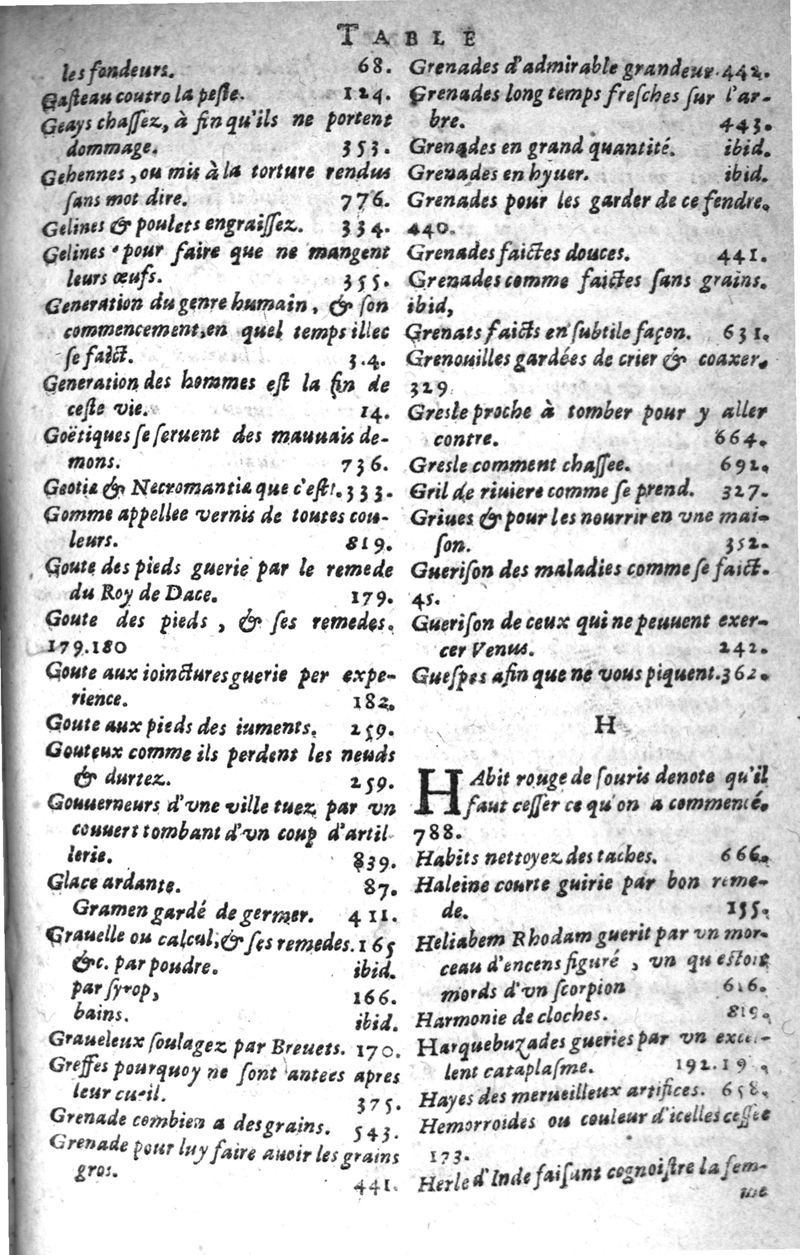 TABLE
les fondeurs. 68.
Gasteau contro la peste. 124.
Geays chassez, à fin qu'ils ne portent
dommage. 353.
Gehennes, ou mis à la torture rendus
sans mot dire. 776.
Gelines & poulets engraissez. 334.
Gelines pour faire que ne mangent
leurs œufs. 355.
Generation du genre humain, & son
commencement, en quel temps illec
se faict. 3.4.
Generation des hommes est la fin de
ceste vie. 14.
Goëtiques se seruent des mauuais de-
mons. 736.
Geotia & Necromantia que c'est. 333.
Gomme appellee vernis de toutes cou-
leurs. 819.
Goute des pieds guerie par le remede
du Roy de Dace. 179.
Goute des pieds, & ses remedes.
179.180
Goute aux ioinctures guerie per expe-
rience. 182.
Goute aux pieds des iuments. 259.
Gouteux comme ils perdent les neuds
& durtez. 259.
Gouuerneurs d'vne ville tuez par vn
couuert tombant d'vn coup d'artil
lerie. 839.
Glace ardante. 87.
Gramen gardé de germer. 411.
Grauelle ou calcul, & ses remedes. 165
&c. par poudre. ibid.
par syrop, 166.
bains. ibid.
Graueleux soulagez par Breuets. 170.
Greffes pourquoy ne sont antees apres
leur cueil. 375.
Grenade combien a des grains. 543.
Grenade pour luy faire auoir les grains
gros. 441.
Grenades d'admirable grandeur. 442.
Grenades long temps fresches sur l'ar-
bre. 443.
Grenades en grand quantité. ibid.
Grenades en hyuer. ibid.
Grenades pour les garder de ce fendre.
440.
Grenades faictes douces. 441.
Grenades comme faictes sans grains.
ibid,
Grenats faicts en subtile façon. 631.
Grenouilles gardées de crier & coaxer.
329
Gresle proche à tomber pour y aller
contre. 664.
Gresle comment chassee. 692.
Gril de riuiere comme se prend. 327.
Griues & pour les nourrir en vne mai-
son. 352.
Guerison des maladies comme se faict.
45.
Guerison de ceux qui ne peuuent exer-
cer Venus. 242.
Guespes afin que ne vous piquent. 362.
H
HAbit rouge de souris denote qu'il
faut cesser ce qu'on a commencé.
788.
Habits nettoyez des taches. 666.
Haleine courte guirie par bon reme-
de. 155.
Heliabem Rhodam guerit par vn mor-
ceau d'encens figuré, vn qu estoit
mords d'vn scorpion 616.
Harmonie de cloches. 819.
Harquebuzades gueries par vn excel-
lent cataplasme. 192.19
Hayes des merueilleux artifices. 658.
Hemorroides ou couleur d'icelles cessée
173.
Herle d'Inde faisant cognoistre la fem-
me